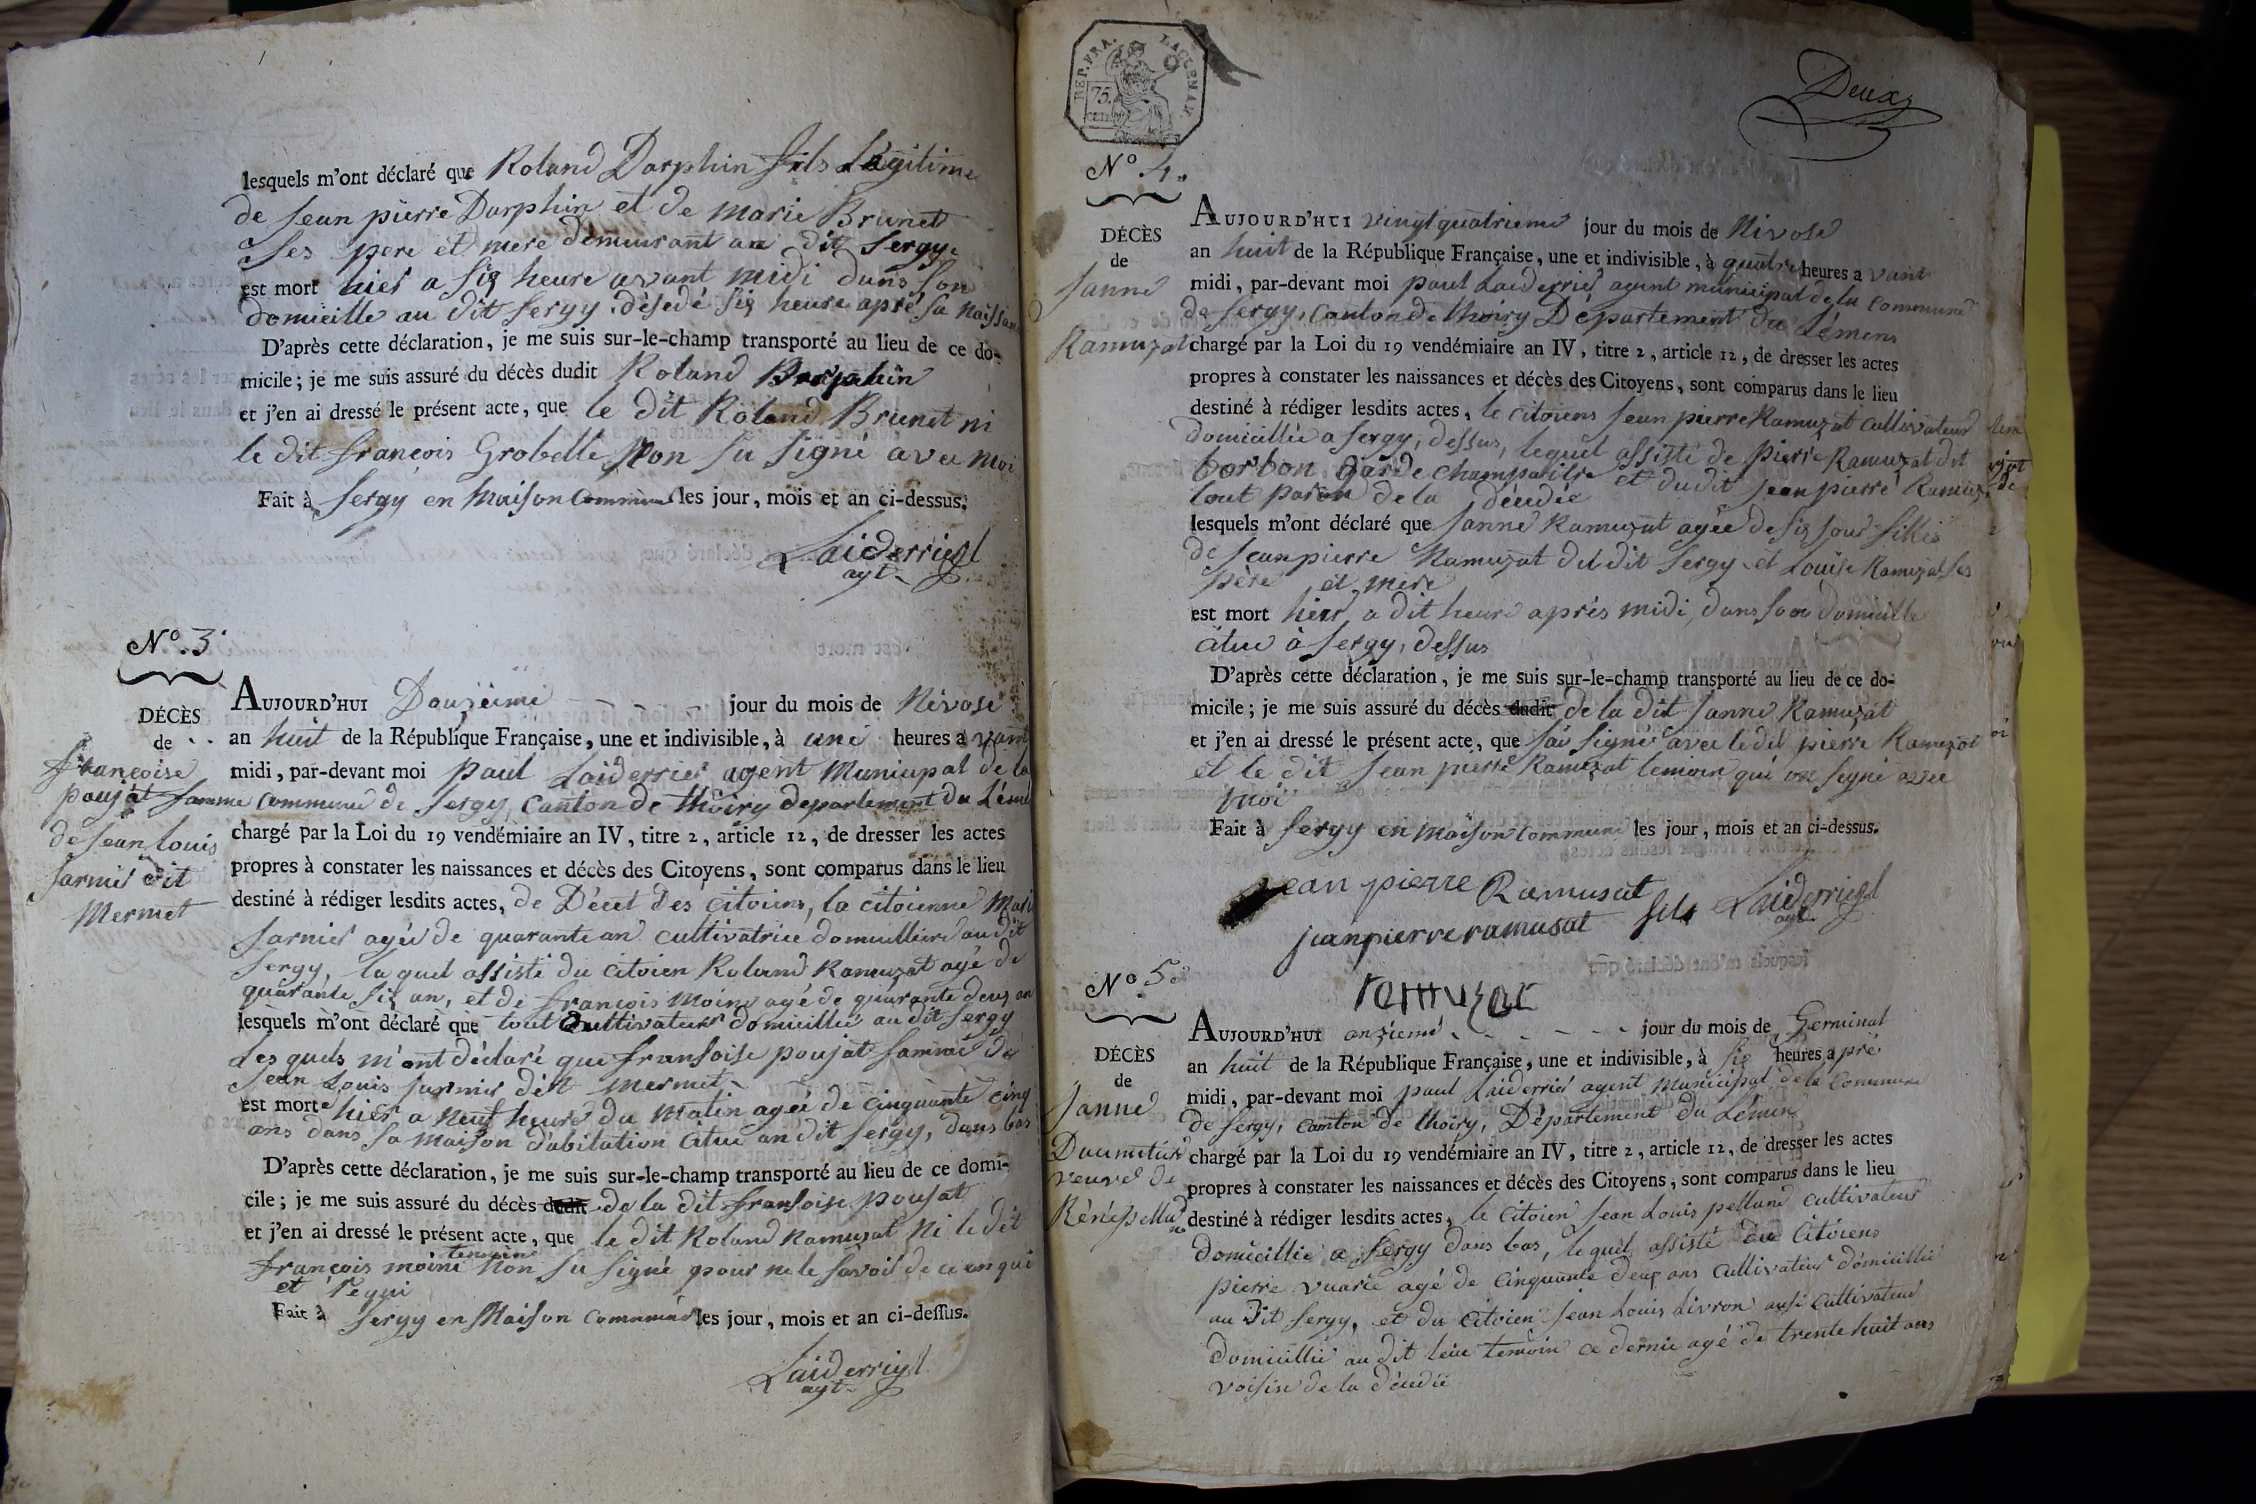 lesquels m'ont déclaré que Roland Dorphin fils Légitime
de Jean pierre Dorphin et de marie Brunet
Ses pere et mere demeurant au dit Sergy
est mort hier a six heure avant midi dans son
domicille au dit Sergy désedé six heure apré sa naissan
D'après cette déclaration, je me suis sur-le-champ transporté au lieu de ce do-
micile; je me suis assuré du décès dudit Roland Dorphin
et j'en ai dressé le présent acte, que le dit Roland Brunet ni
le dit françois Grobelle Non su Signé avec moi
Fait à Sergy en Maison Commune les jour, mois et an ci-dessus.
Laiderrier
agt
N.º 3
DÉCÈS
de
françoise
poujat famme
de Jean Louis
Jarnier dit
Mermet
AUJOURD'HUI Douzieme jour du mois de Nivose
an huit de la République Française, une et indivisible, à une heures avant
midi, par-devant moi paul Laiderrier agent Municipal de la
Commune de Sergy, Canton de thoiry departement du Lém
chargé par la Loi du 19 vendémiaire an IV, titre 2, article 12, de dresser les actes
propres à constater les naissances et décès des Citoyens, sont comparus dans le lieu
destiné à rédiger lesdits actes, de Décet des citoiens, la citoienne Mari
Jarnier agée de quarante an cultivatrice domicilliere au dit
Sergy, la quel assisté du citoien Roland Ramuzat agé de
quarante six an, et de françois Moine agé de quarante deux an
lesquels m'ont déclaré que tout Cultivateur domicillié au dit Sergy
Les quels m'ont déclaré que fransoise poujat famme de
Jean Louis Jarnier dit Mermet
est morte hier a Neuf heure du Matin agée de cinquante cinq
ans dans sa maison d'abitation citue au dit Sergy, dans bas
D'après cette déclaration, je me suis sur-le-champ transporté au lieu de ce domi-
cile; je me suis assuré du décès dudit de la dit fransoise poujat
et j'en ai dressé le présent acte, que le dit Roland Ramuzat Ni le dit
françois moine temoins Non su Signé pour ne le savoir de ce enquis
et réqui
Fait à Sergy en Maison Commune les jour, mois et an ci-dessus.
Laiderrier
agt
REP. FRA.
75.
CENT.
Deux
N.º 4.
DÉCÈS
de
Janne
Ramuzat
AUJOURD'HUI vingt quatrieme jour du mois de Nivose
an huit de la République Française, une et indivisible, à quatre heures avant
midi, par-devant moi paul Laiderrier agent municipal de la Commune
de Sergy, Canton de thoiry Département du Lémens
chargé par la Loi du 19 vendémiaire an IV, titre 2, article 12, de dresser les actes
propres à constater les naissances et décès des Citoyens, sont comparus dans le lieu
destiné à rédiger lesdits actes, le citoiens Jean pierre Ramuzat cultivateur
domicillié a Sergy, dessus, lequel assisté de Pierre Ramuzat dit
borbon garde champaitre et dudit Jean pierre Ramuz
tout paran de la décudée
lesquels m'ont déclaré que Janne Ramuzat agée de six jour fillie
de Jean pierre Ramuzat du dit Sergy et Louise Ramuzat ses
père et mere
est mort hier a dit heure après midi, dans son domicille
citue à Sergy, dessus
D'après cette déclaration, je me suis sur-le-champ transporté au lieu de ce do-
micile; je me suis assuré du décès dudit de la dit Janne Ramuzat
et j'en ai dressé le présent acte, que j'ai Signé avec le dit pierre Ramuzat
et le dit Jean pierre Ramuzat temoin qui on Segné avec
Moi
Fait à Sergy en Maison commune les jour, mois et an ci-dessus.
Jean pierre Ramusat
jeanpierre ramusat fils Laiderrier
agt
ramuzat
N.º 5.
DÉCÈS
de
Janne
Dumitier
veuve de
Réné pellu
AUJOURD'HUI onzieme jour du mois de Germinal
an huit de la République Française, une et indivisible, à six heures apré
midi, par-devant moi paul Laiderrier agent Municipal de la Commune
de Sergy, Canton de thoiry, Département du Léman
chargé par la Loi du 19 vendémiaire an IV, titre 2, article 12, de dresser les actes
propres à constater les naissances et décès des Citoyens, sont comparus dans le lieu
destiné à rédiger lesdits actes, le Citoien Jean Louis pelland cultivateur
domicillié a Sergy dans bas, lequel assisté du Citoiens
pierre vuarié agé de cinquante deux ans cultivateur domicillié
au dit Sergy, et du Citoien Jean Louis Livron ausi cultivateur
domicillié au dit leiu temoin ce dernie agé de trente huit ans
voisin de la décudée